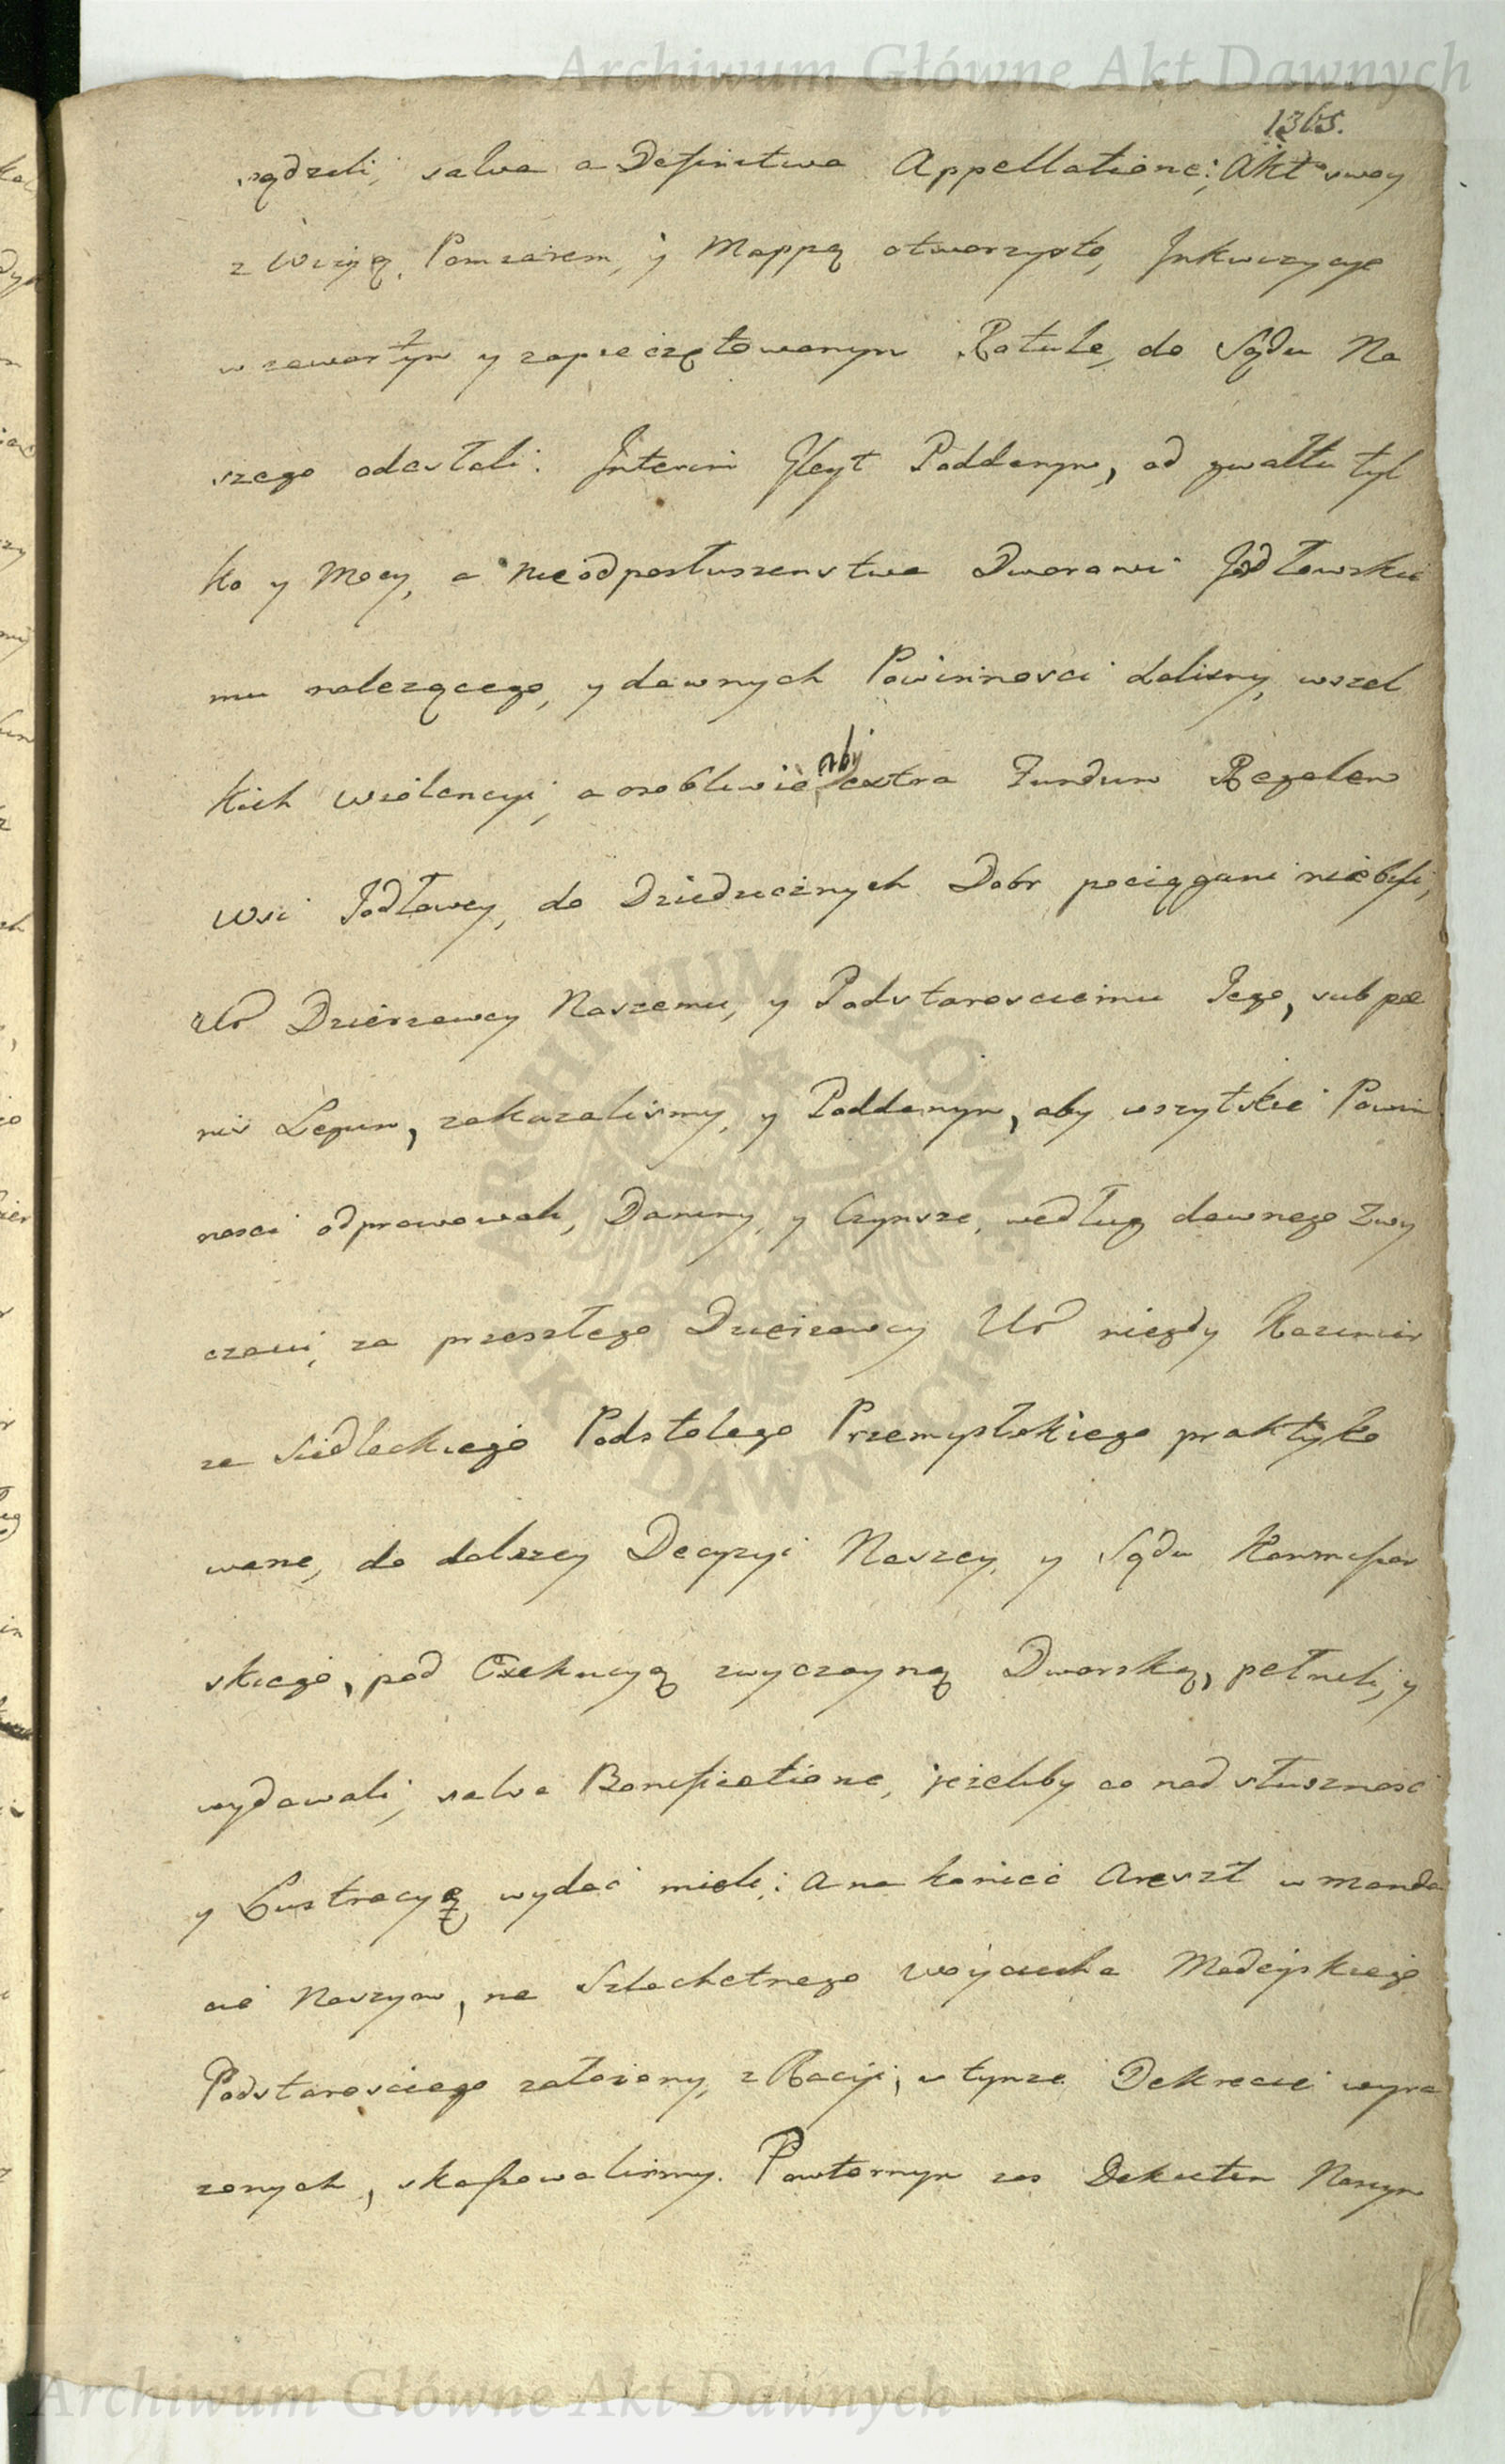 Archiwum Główne Akt Dawnych
1365.
sądzili, salva a Definitiva Appellatione; Akt swoy
z Wizyą, Pomiarem, y Mappą otworzysto, Inkwizycye
w zawartym y zapieczętowanym Rotule, do Sądu Na
szego odesłali. Interim Gleyt Poddanym, od gwałtu tyl
ko y Mocy, a nie od posłuszenstwa Dworowi Jodłowskie
mu nalezącego, y dawnych Powinnosci dalismy, wszel
kich wiolencyi, a osobliwie aby extra Fundum Regalem
Wsi Jodłowey, do Dziedzicznych Dobr pociągani niebyli,
Ur Dzierzawcy Naszemu, y Podstarosciemu Jego, sub pæ
nis Legum, zakazalismy, y Poddanym, aby wszytskie Powin
nosci odprawowali, Daniny, y Czynsze, według dawnego Zwy
czaiu, za przeszłego Dzierzawcy Ur niegdy Kazimier
za Siedleckiego Podstolego Przemyslskiego praktyko
wane, do dalszey Decyzyi Naszey, y Sądu Kommissar
skiego, pod Exekucyą zwyczayną Dworską, pełnili, y
wydawali, salva Bonificatione, jezeliby co nad słusznosc
y Lustracyą wydac mieli: A na koniec Areszt w manda
cie Naszym, na Szlachetnego Woyciecha Madeyskiego
Podstarosciego załozony, z Racyi, w tymze Dekrecie wyra
zonych, skassowalismy. Powtornym zas Dekretem Naszym
ARCHIWUM GŁÓWNE AKT DAWNYCH
Archiwum Główne Akt Dawnych